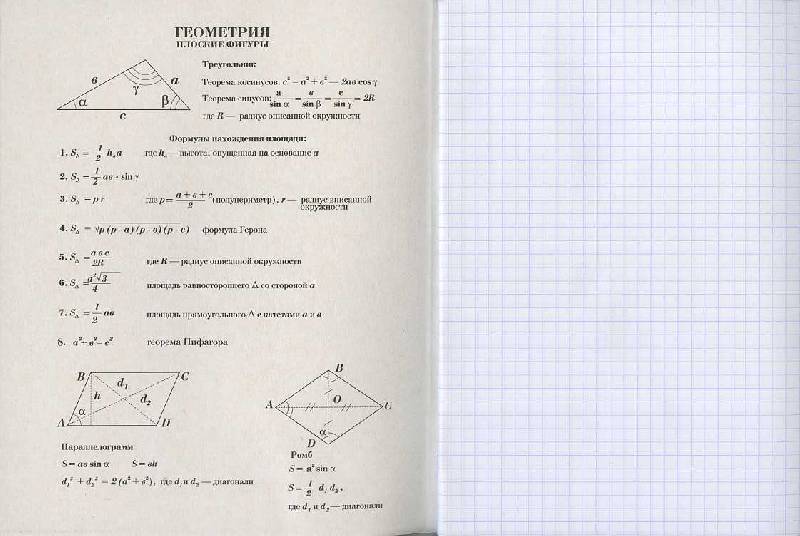 ГЕОМЕТРИЯ
ПЛОСКИЕ ФИГУРЫ
Треугольник:
Теорема косинусов: c² = a² + в² — 2ав cos γ
Теорема синусов: a / sin α = в / sin β = c / sin γ = 2R
где R — радиус описанной окружности
в a
α γ β
c
Формулы нахождения площади:
1. S△ = 1/2 hₐa где hₐ — высота, опущенная на основание a
2. S△ = 1/2 ав · sin γ
3. S△ = p r где p = (a + в + c)/2 (полупериметр), r — радиус вписанной
окружности
4. S△ = √p (p - a) (p - в) (p - c) формула Герона
5. S△ = a в c / 2R где R — радиус описанной окружности
6. S△ = a²√3 / 4 площадь равностороннего △ со стороной a
7. S△ = 1/2 ав площадь прямоугольного △ с катетами a и в
8. a² + в² = c² теорема Пифагора
B C
d₁
h d₂
α
A D
Параллелограмм
S = ав sin α S = ah
d₁² + d₂² = 2 (a² + в²), где d₁ и d₂ — диагонали
B
A O C
α
D
Ромб
S = a² sin α
S = 1/2 d₁ d₂,
где d₁ и d₂ — диагонали